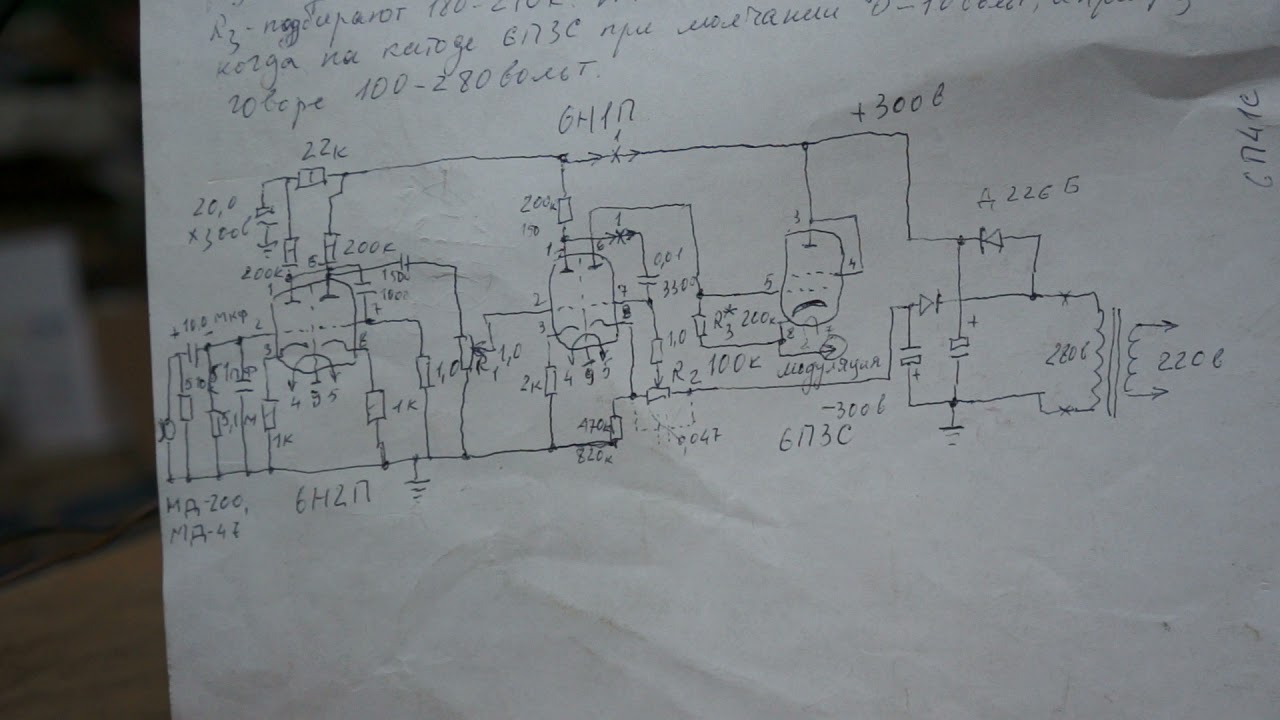 R3 - подбирают 180-210к.
когда на катоде 6П3С при молчании 0-10 вольт,
говоре 100-280 вольт.
6Н1П
+300в
СП41С
22к
1
Д226Б
20,0
×300в
200к
200к
200к
150
1
1500
1000
0,01
3300
1
6
7
8
2
3
4 9 5
3
5
4
8
2
7
+ 10,0 мкф
1
6
2
7
3
8
4 9 5
1к
1к
1,0
R1
1,0
2к
1,0
R3* 200к
R2 100к
модуляция
470к
820к
0,047
-300в
6П3С
280в
220в
+
+
МД-200,
МД-47
6Н2П